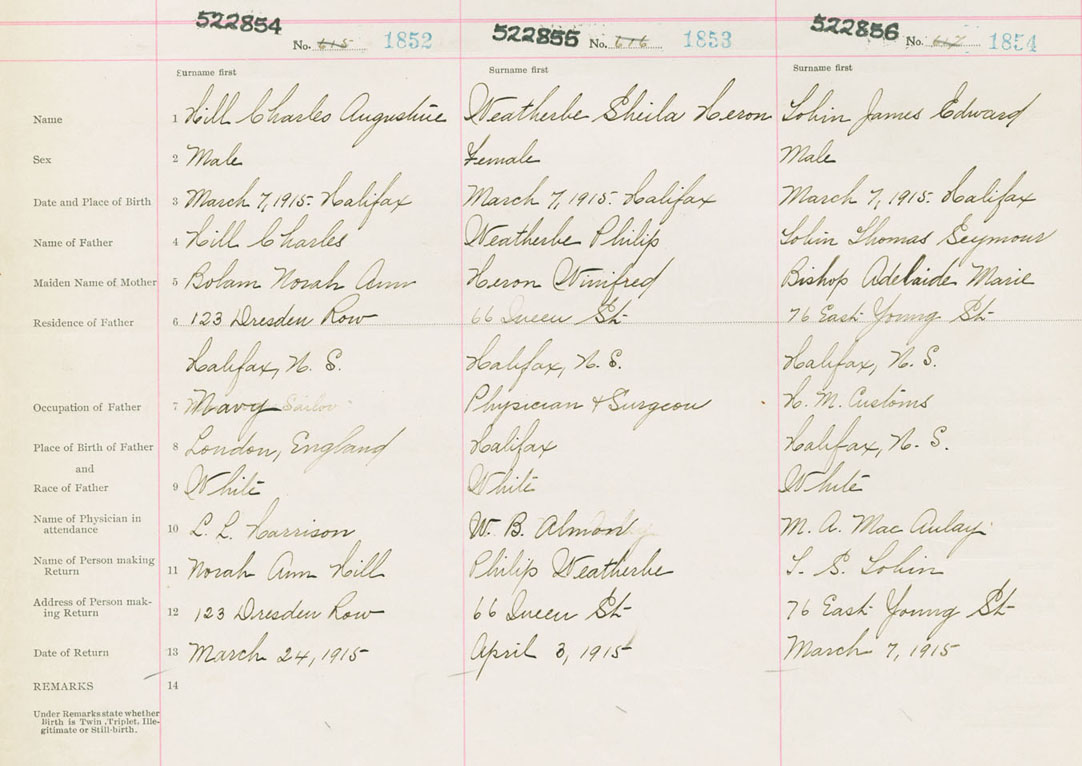 522854 522855 522856
No. 615 1852 No. 616 1853 No. 617 1854
Surname first Surname first Surname first
Name 1 Hill Charles Augustine Weatherbe Sheila Heron Tobin James Edward
Sex 2 Male Female Male
Date and Place of Birth 3 March 7, 1915. Halifax March 7, 1915. Halifax March 7, 1915. Halifax
Name of Father 4 Hill Charles Weatherbe Philip Tobin Thomas Seymour
Maiden Name of Mother 5 Bolam Norah Ann Heron Winifred Bishop Adelaide Marie
Residence of Father 6 123 Dresden Row 66 Queen St 76 East Young St
Halifax, N. S. Halifax, N. S. Halifax, N. S.
Occupation of Father 7 Navy Sailor Physician & Surgeon H. M. Customs
Place of Birth of Father 8 London, England Halifax Halifax, N. S.
and
Race of Father 9 White White White
Name of Physician in
attendance 10 L. L. Harrison W. B. Almon M. A. Mac Aulay
Name of Person making
Return 11 Norah Ann Hill Philip Weatherbe T. S. Tobin
Address of Person mak-
ing Return 12 123 Dresden Row 66 Queen St 76 East Young St
Date of Return 13 March 24, 1915 April 3, 1915 March 7, 1915
REMARKS 14
Under Remarks state whether
Birth is Twin, Triplet, Ille-
gitimate or Still-birth.